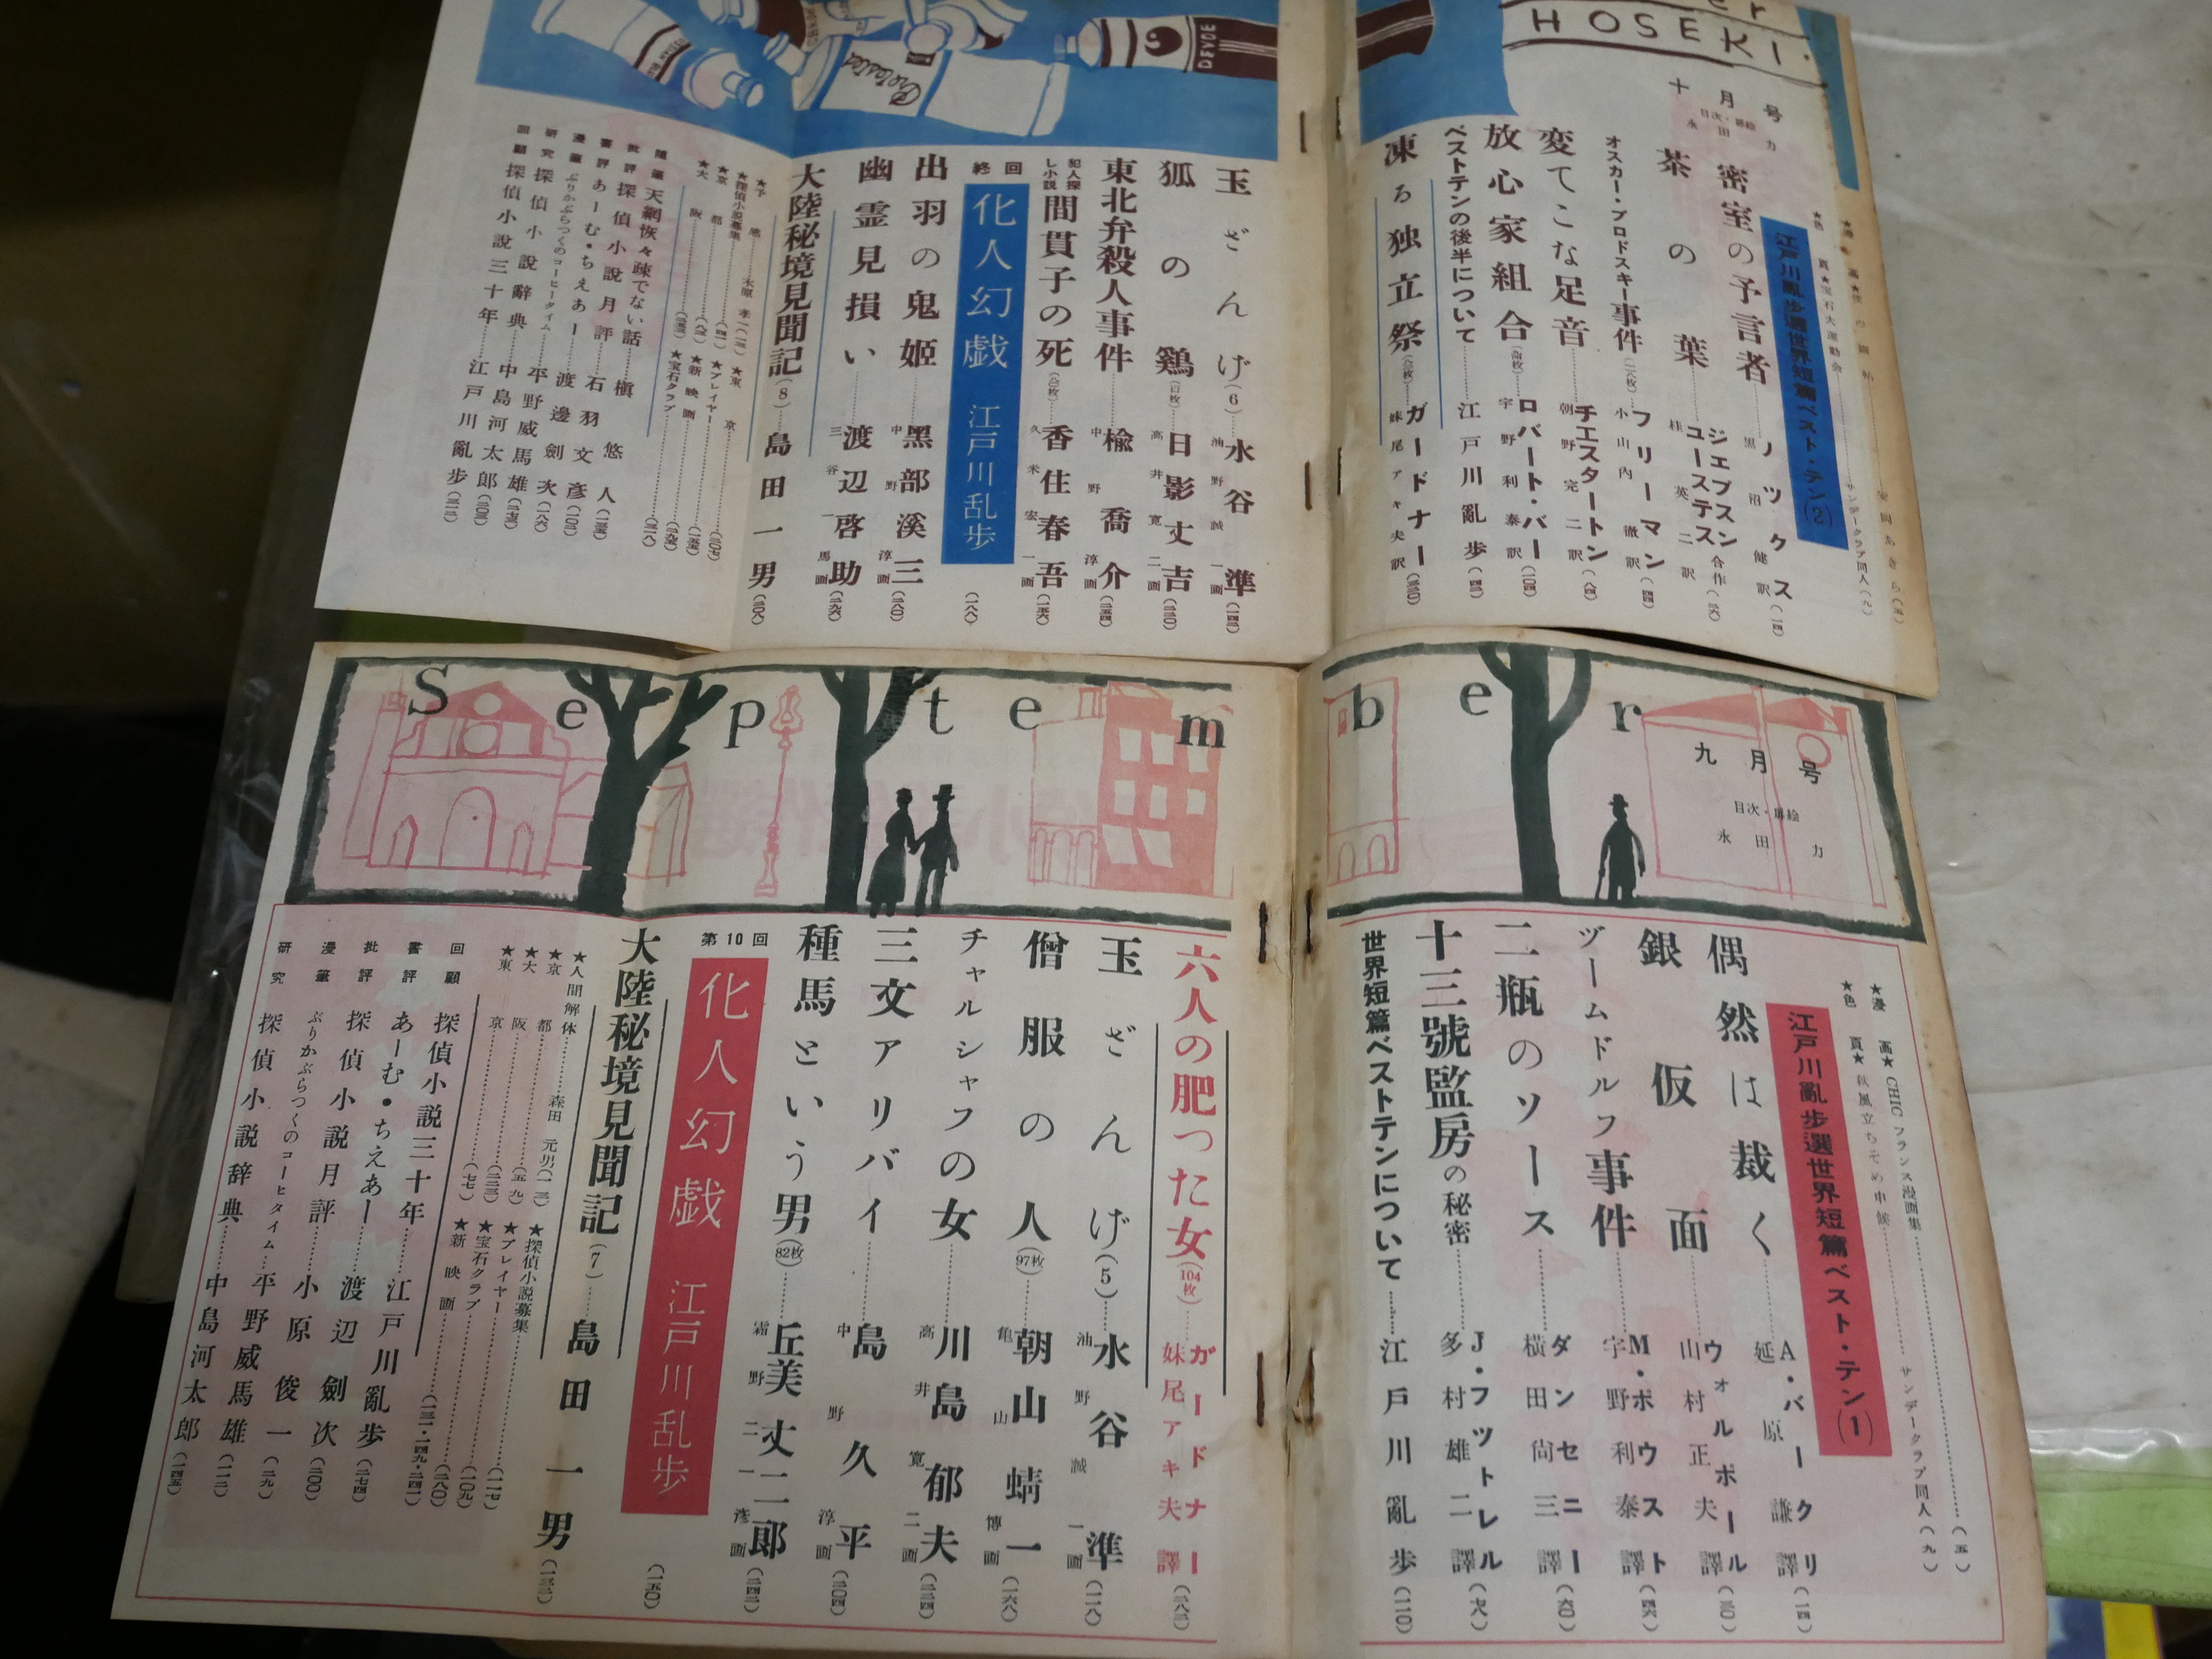 HOSEKI.
十月号
目次・扉絵
永田力
江戸川亂歩選世界短篇ベスト・テン(2)
密室の予言者……ノックス
茶の葉……ジェプスン ユーステス 合作
オスカー・ブロドスキー事件……フリーマン
変てこな足音……チエスタートン
放心家組合……ロバート・バー
ベストテンの後半について……江戸川亂歩
凍る独立祭……ガードナー
妹尾アキ夫訳
玉ざんげ(6)……水谷準
狐の鶏……日影丈吉
東北弁殺人事件……楡喬介
犯人探し小説 間貫子の死……香住春吾
終回
化人幻戯 江戸川乱歩
出羽の鬼姫……黑部溪三
幽霊見損い……渡辺啓助
大陸秘境見聞記(8)……島田一男
随筆 天網恢々疎でない話……槇悠人
批評 探偵小説月評……石羽文彥
書評 あーむ・ちえあー……渡邊劍次
漫筆 ぶりかぶらつくのコーヒータイム……平野威馬雄
研究 探偵小說辭典……中島河太郎
回顧 探偵小說三十年……江戸川亂歩
DEVOE
September
九月号
目次・扉絵
永田力
★漫画★CHICフランス漫画集……(五)
★色頁★秋風立ちそめ申候……サンデークラブ同人(九)
江戸川亂歩選世界短篇ベスト・テン(1)
偶然は裁く……A・バークリ
延原謙譯(一四)
銀仮面……ウォルポール
山村正夫譯(三〇)
ヅームドルフ事件……M・ポウスト
宇野利泰譯(四六)
二瓶のソース……ダンセニー
横田尙三譯(六〇)
十三號監房の秘密……J・フットレル
多村雄二譯(七八)
世界短篇ベストテンについて……江戸川亂歩(一一〇)
六人の肥った女(104枚)……ガードナー
妹尾アキ夫譯(二八二)
玉ざんげ(5)……水谷準(一一八)
油野誠一画
僧服の人(97枚)……朝山蜻一(一六六)
亀山博画
チャルシャフの女……川島郁夫(二二四)
高井寛二画
三文アリバイ……島久平(二〇四)
中野淳画
種馬という男(82枚)……丘美丈二郎(二四二)
霜野二一彦画
第10回
化人幻戯 江戸川乱歩
(一五〇)
大陸秘境見聞記(7)……島田一男(一三二)
★人間解体……森田元男
★京都
★大阪
★東京
★探偵小説募集
★プレイヤー
★宝石クラブ
★新映画
回顧 探偵小説三十年……江戸川亂歩(二七四)
書評 あーむ・ちえあー……渡辺劍次(二〇〇)
批評 探偵小説月評……小原俊一(二九)
漫筆 ぶりかぶらつくのコーヒタイム……平野威馬雄(一一二)
研究 探偵小説辞典……中島河太郎(一四五)